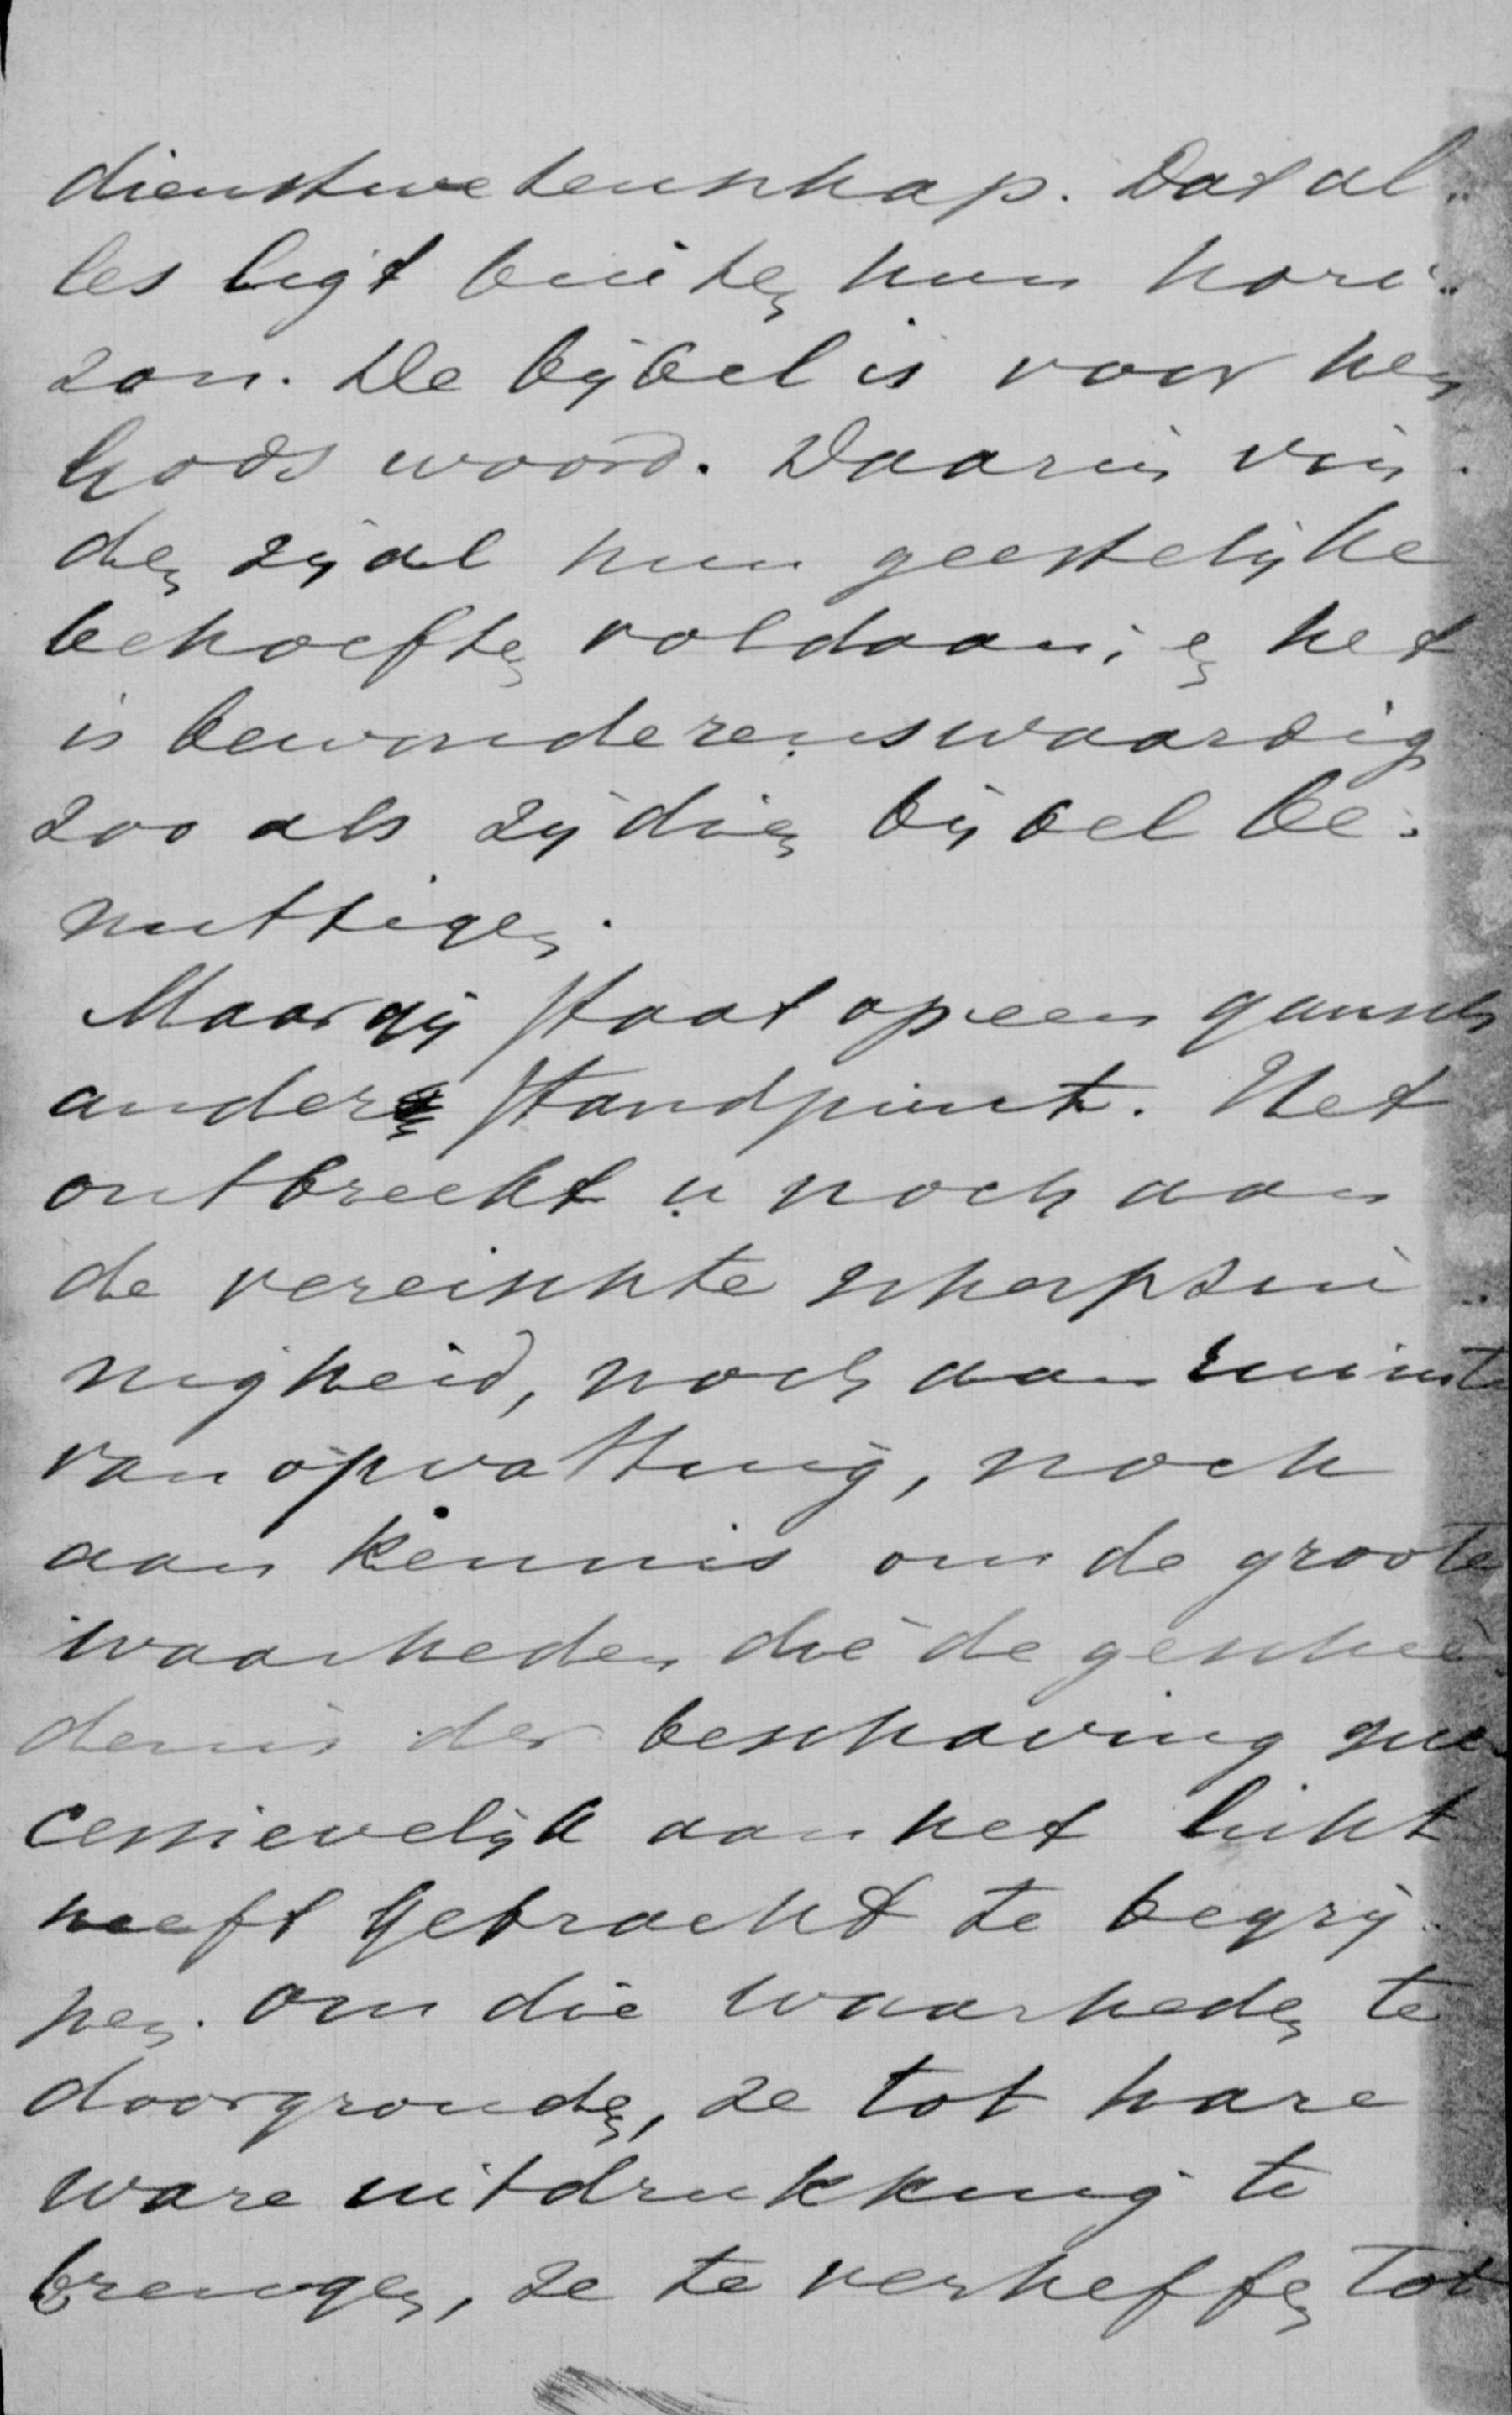 dienstwetenschap. Dat al..
les ligt buiten hun hori..
zon. De bijbel is voor hen
Gods woord. Daarin vin.
den zij al hun geestelijke
behoeften voldaan; en het
is bewonderenswaardig
zoo als zij dien bijbel be.
nuttigen.
Maar gij staat op een gansch
ander standpunt. Het
ontbreekt u noch aan
de vereischte scherpzin..
nigheid, noch aan ruimte
van opvatting, noch
aan kennis om de groote
waarheden die de geschie
denis der beschaving suc
cessievelijk aan het licht
heeft gebracht te begrij.
pen. Om die waarheden te
doorgronden, ze tot hare
ware uitdrukking te
brengen, ze te verheffen tot